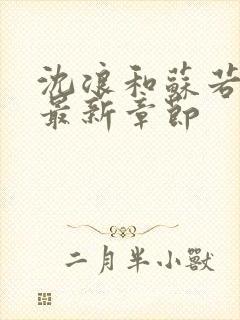 沈浪和蘇若
最新章節
二月半小獸